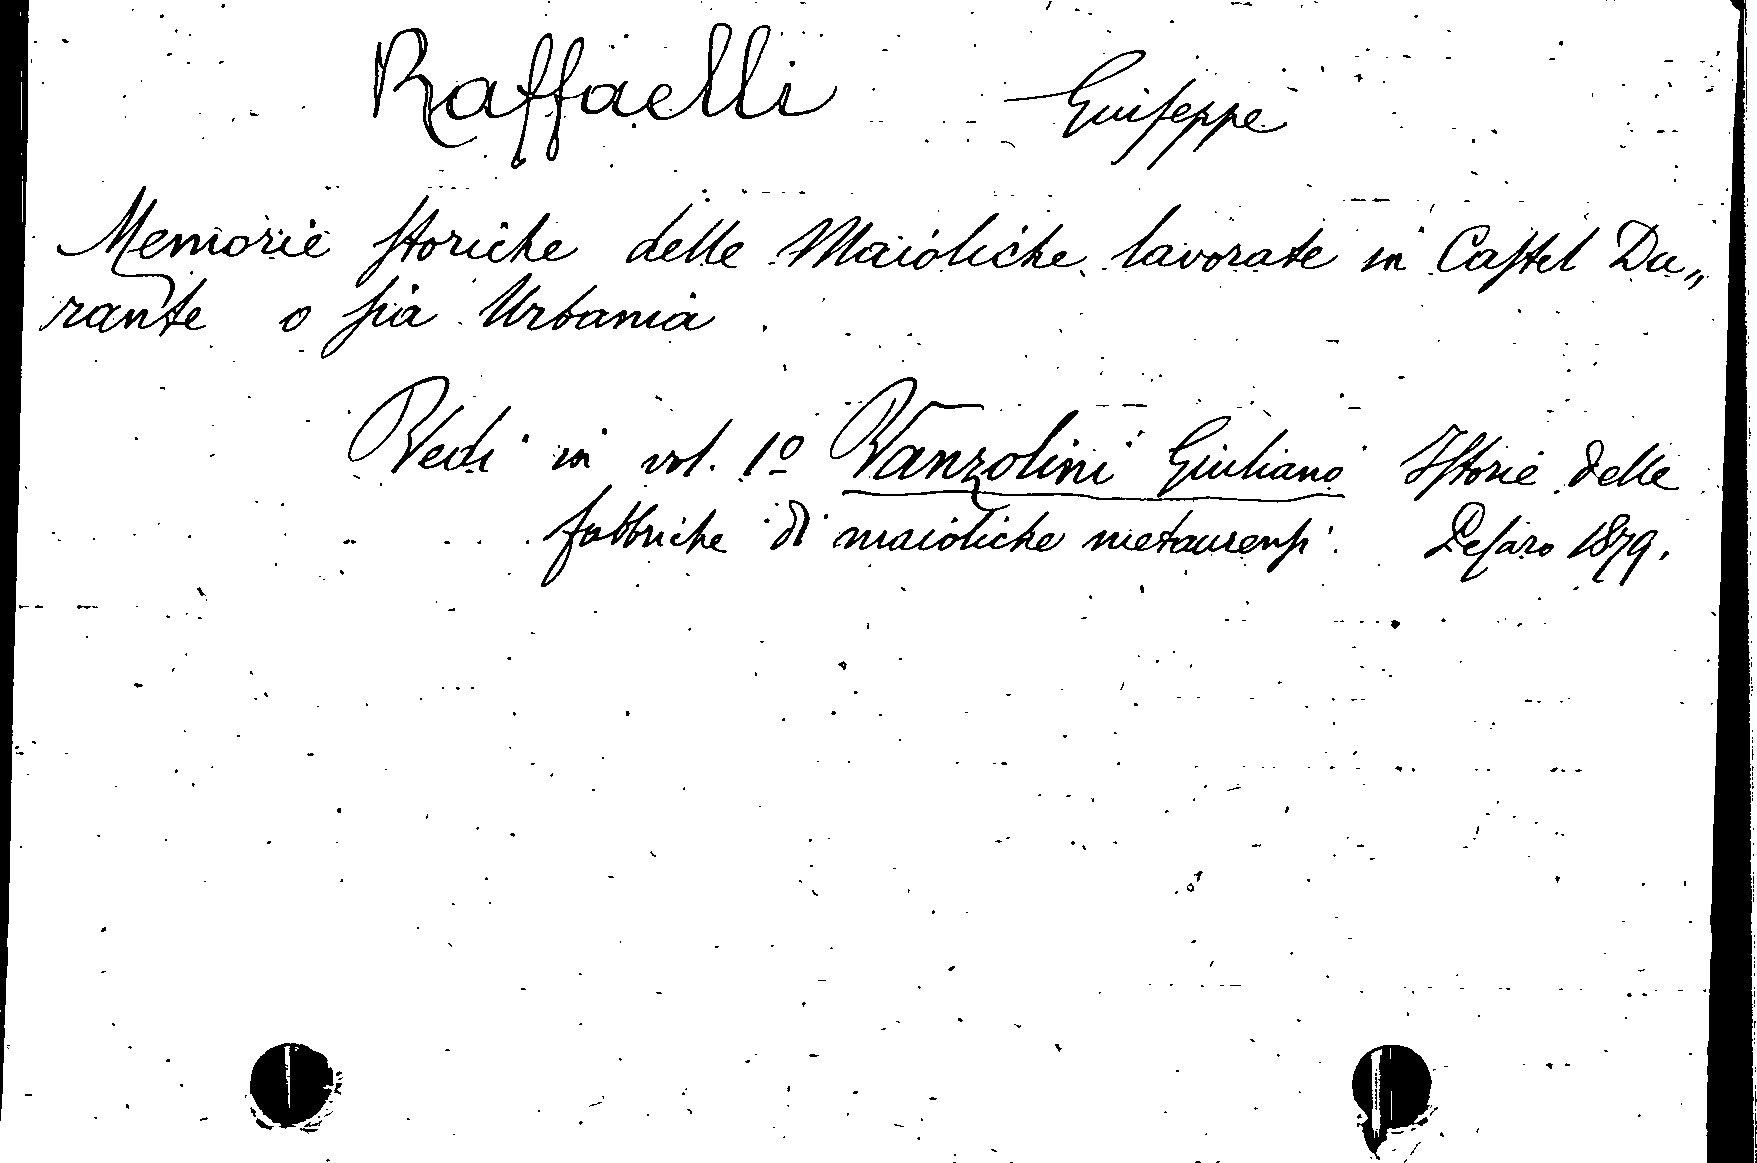 Raffaelli Giuseppe
Memorie storiche delle Maioliche lavorate in Castel Du„
rante o sia Urbania
Vedi in vol. 1º Vanzolini Giuliano Istorie delle
fabbriche di maioliche metaurensi. Pesaro 1879.